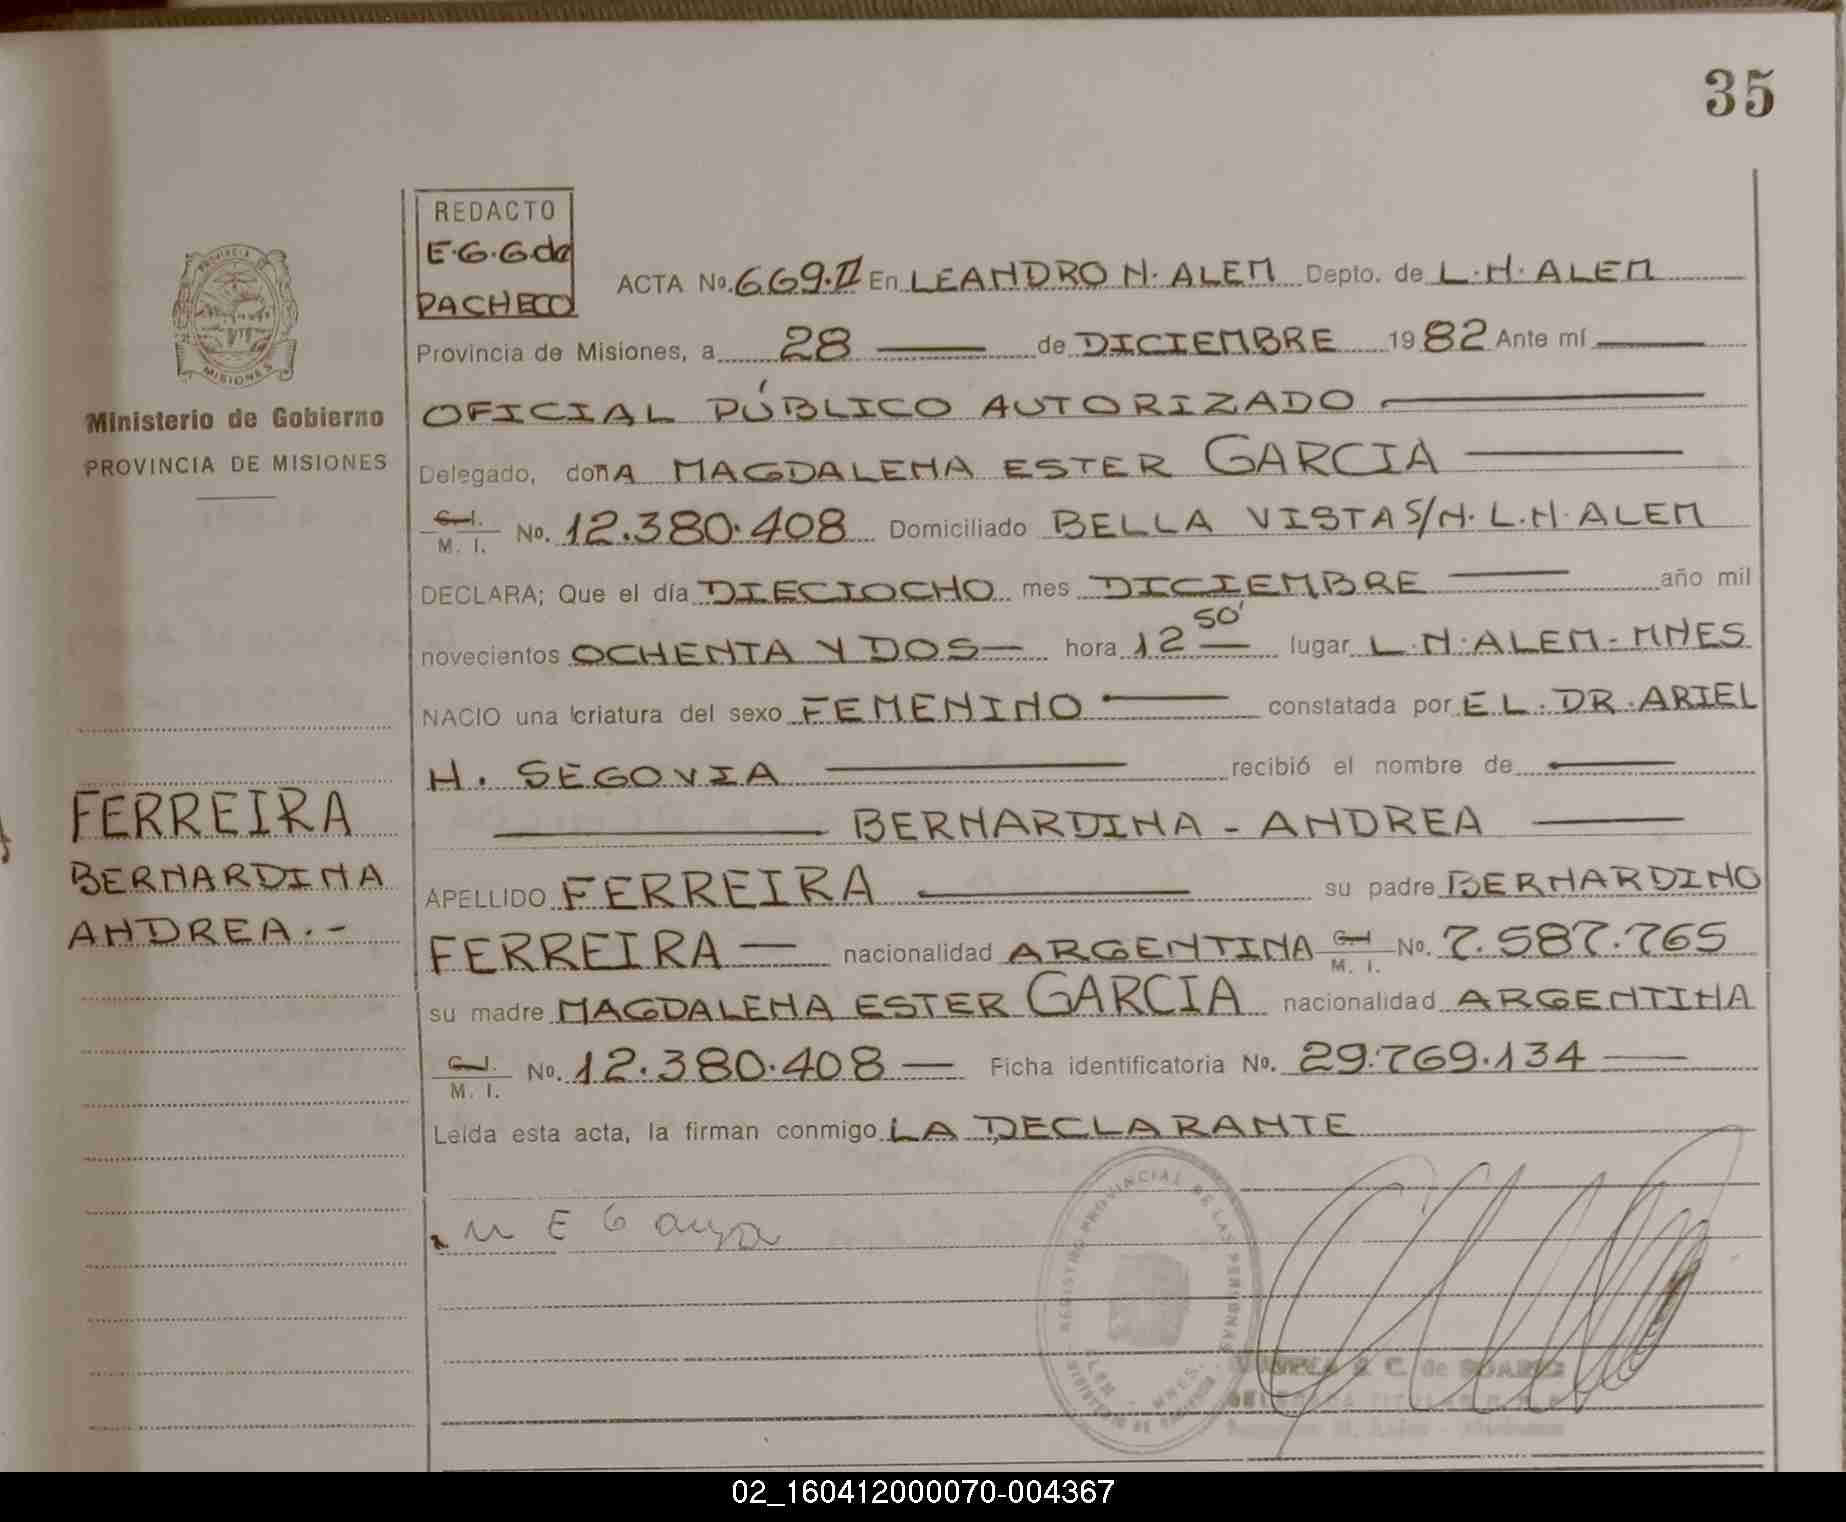 35
REDACTO
E.G.G.de
PACHECO
PROVINCIA DE
MISIONES
ACTA No. 669.II En LEANDRO N. ALEM Depto. de L.N.ALEM
Provincia de Misiones, a 28 de DICIEMBRE 1982 Ante mí
OFICIAL PÚBLICO AUTORIZADO
Ministerio de Gobierno
PROVINCIA DE MISIONES
Delegado, doñA MAGDALENA ESTER GARCIA
C.I. M. I. No. 12.380.408 Domiciliado BELLA VISTA S/N. L.N.ALEM
DECLARA; Que el día DIECIOCHO mes DICIEMBRE año mil
novecientos OCHENTA Y DOS hora 12 50' lugar L.N.ALEM-MNES
NACIO una criatura del sexo FEMENINO constatada por EL.DR.ARIEL
H. SEGOVIA recibió el nombre de
BERNARDINA - ANDREA
FERREIRA
BERNARDINA
ANDREA.-
APELLIDO FERREIRA su padre BERNARDINO
FERREIRA nacionalidad ARGENTINA C.I. M. I. No. 7.587.765
su madre MAGDALENA ESTER GARCIA nacionalidad ARGENTINA
C.I. M. I. No. 12.380.408 Ficha identificatoria No. 29.769.134
Leída esta acta, la firman conmigo LA DECLARANTE
M E G
REGISTRO PROVINCIAL DE LAS PERSONAS
ALEM - MNES.
C. de SUAREZ
02_160412000070-004367